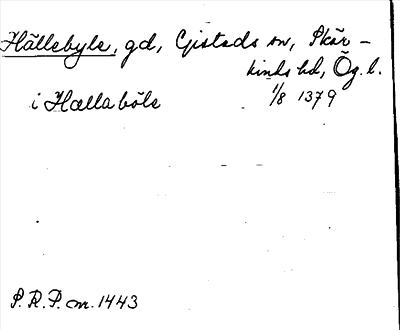 Hällebyle, gd, Gistads sn, Skär-
kinds hd, Ög. l.
i Hællabölе 1/8 1379
S.R.P. nr. 1443